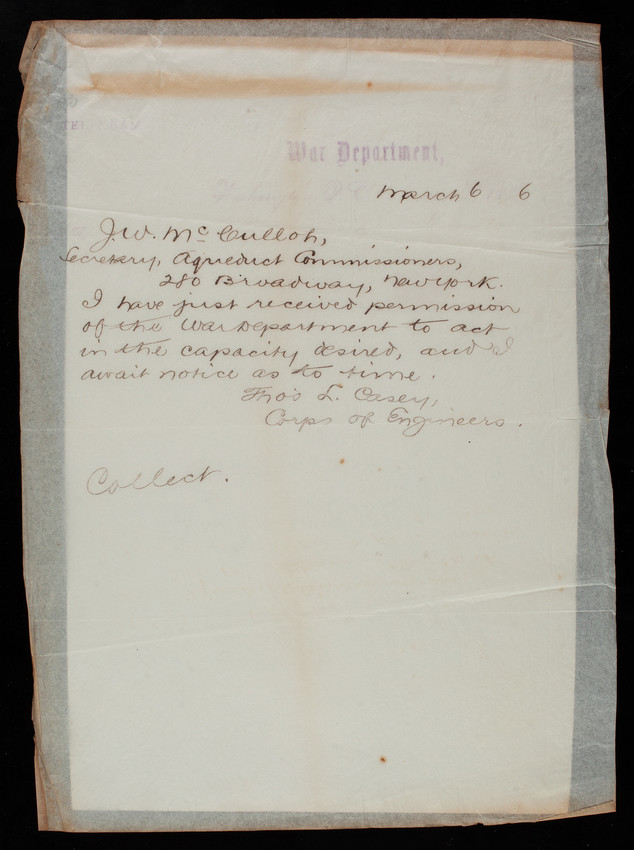 War Department,
March 6 6
J. W. McCulloh,
Secretary, Aqueduct Commissioners,
280 Broadway, New York.
I have just received permission
of the War Department to act
in the capacity desired, and I
await notice as to time.
Tho's L. Casey,
Corps of Engineers.
Collect.